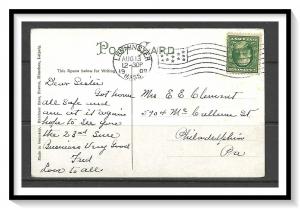 POST CARD
This Space below for Writing
LEOMINSTER
AUG 13
12-30P
1909
MASS.
Dear Sister
Got home
all Safe and
are at it again
hope to See you
the 23rd Sure
Business Very Good
Fred
Love to all
Mrs. E E Clement
5704 McCallum St.
Philadelphia
Pa